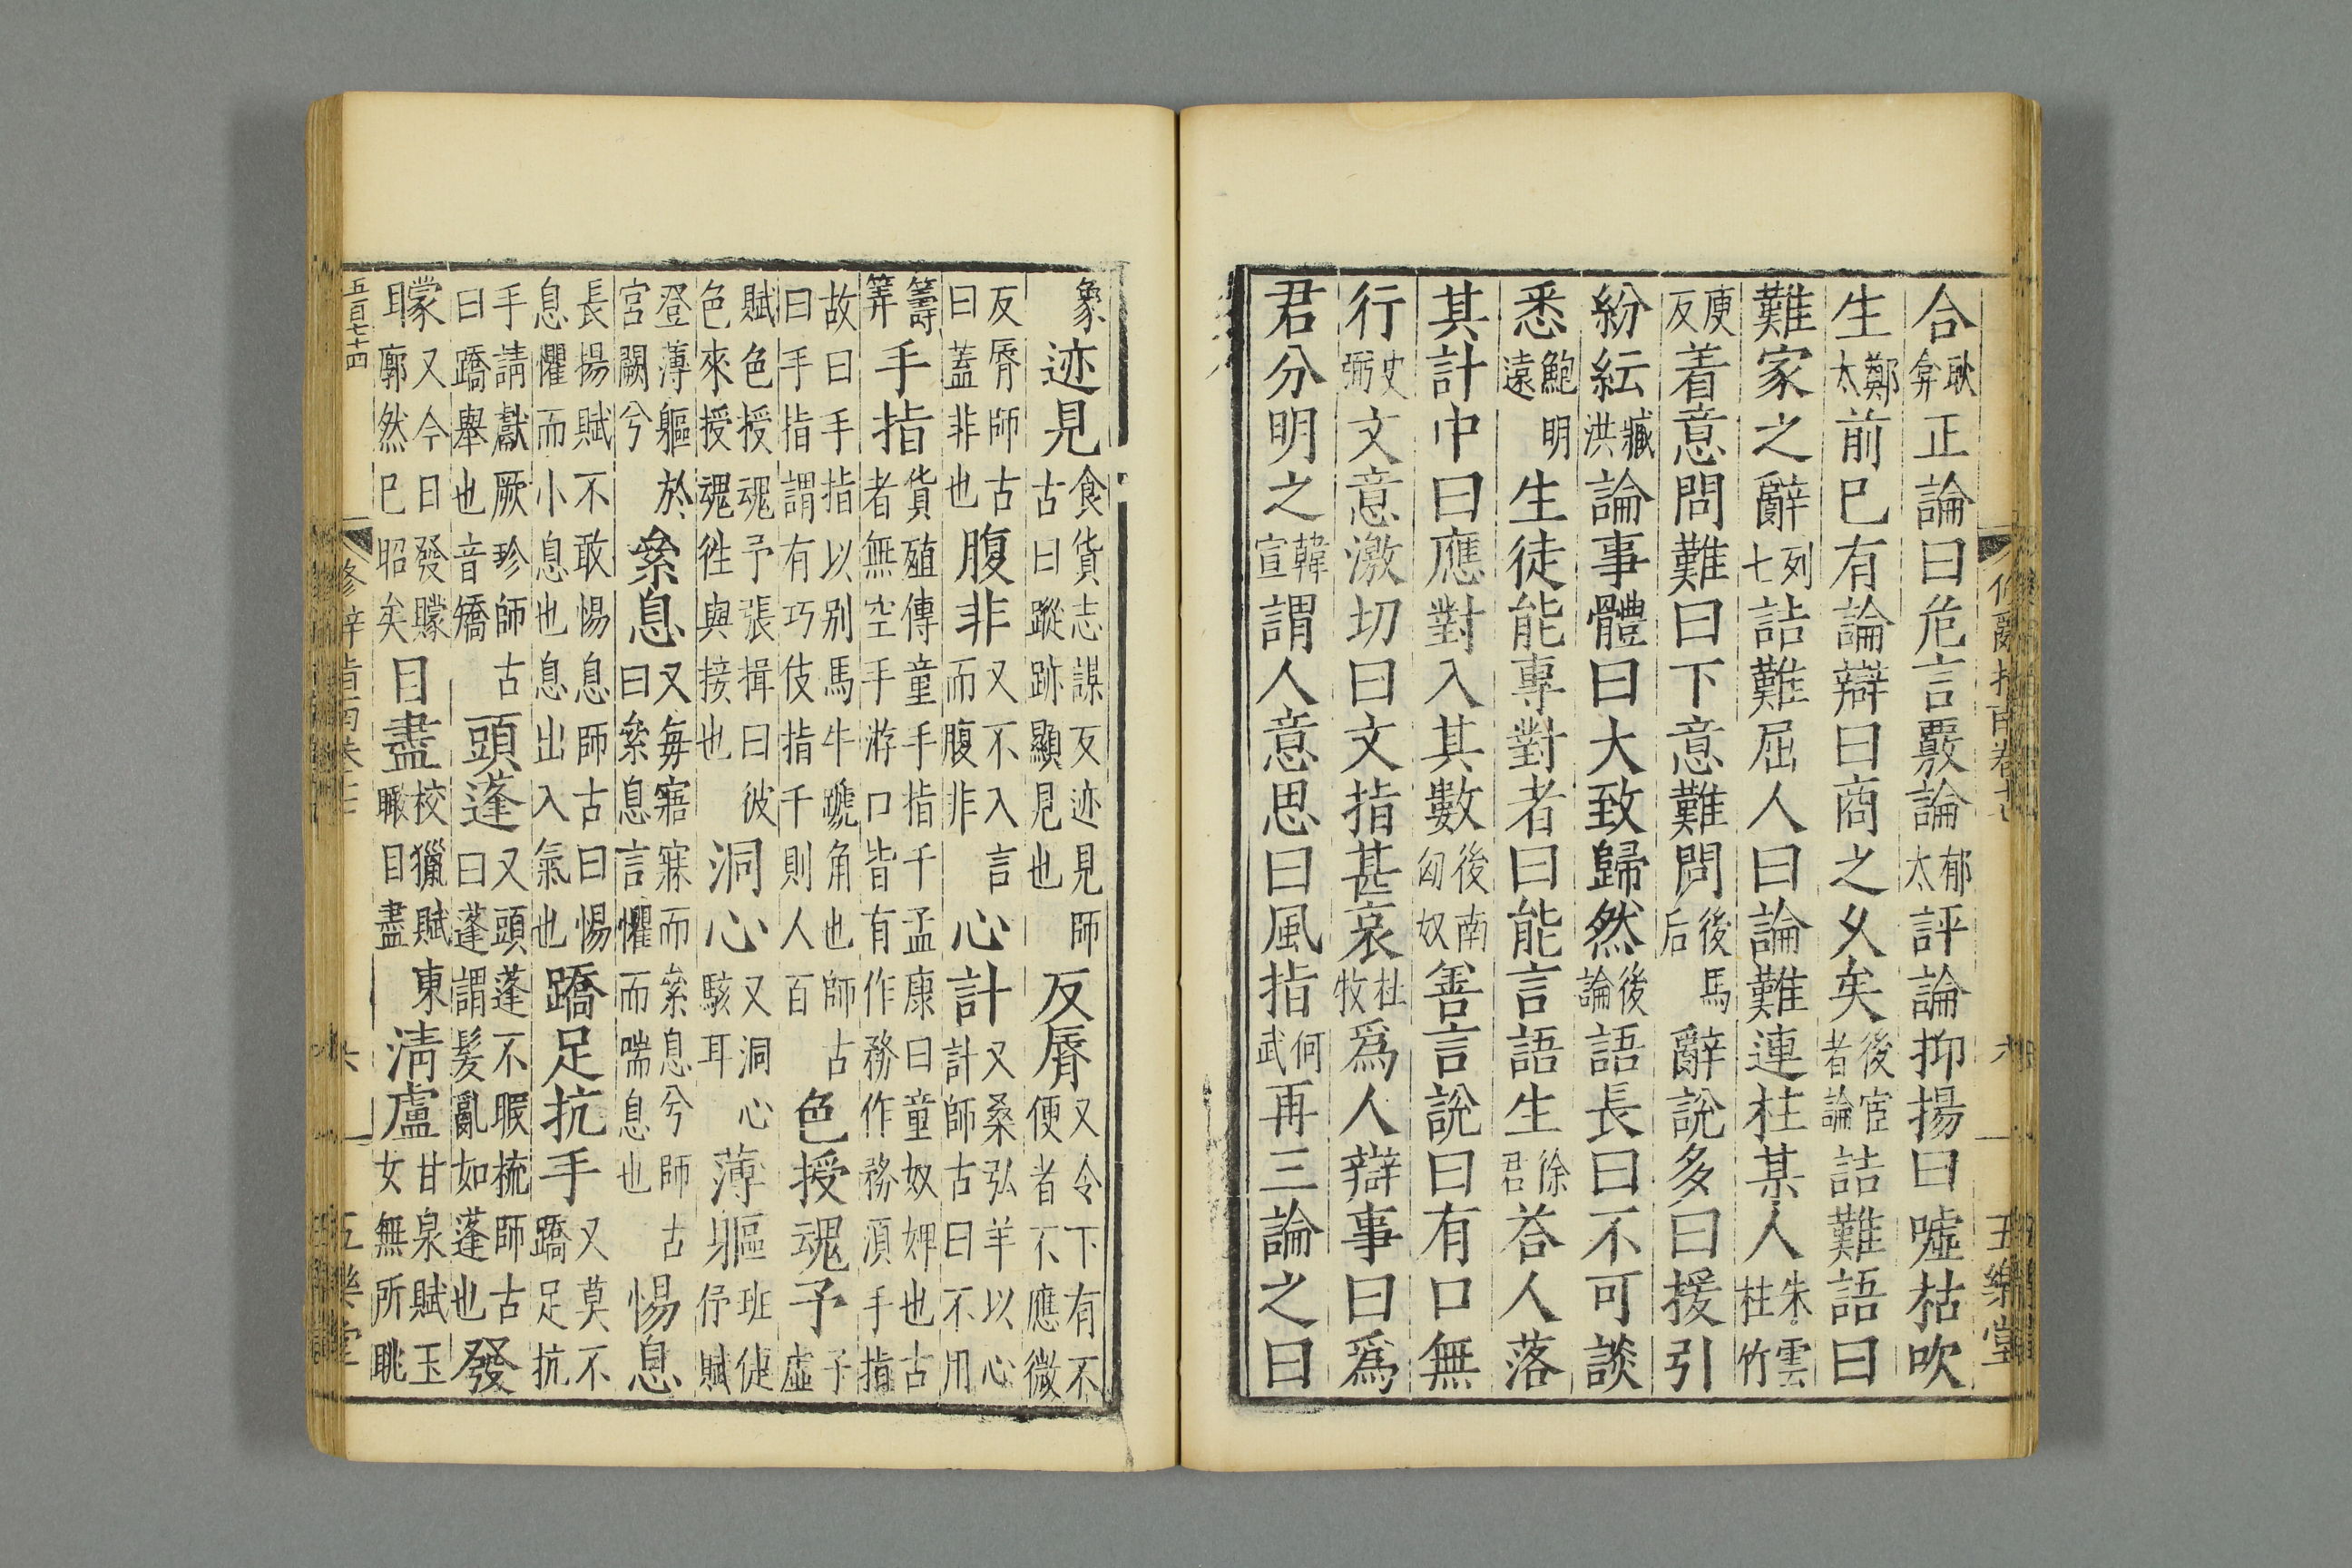 合耿弇正論曰危言覈論郁太評論抑揚曰噓枯吹
生鄭太前巳有論辯曰商之乆矣後宦者論詰難語曰
難家之辭列七詰難屈人曰論難連柱某人朱雲柱竹
庾反着意問難曰下意難問後馬后辭說多曰援引
紛紜臧洪論事體曰大致歸然後論語長曰不可談
悉鮑明遠生徒能專對者曰能言語生徐君荅人落
其計中曰應對入其數後南匈奴善言說曰有口無
行史弼文意激切曰文指甚哀杜牧爲人辯事曰爲
君分明之韓宣謂人意思曰風指何武再三論之曰
象迹見食貨志謀反迹見師古曰蹤跡顯見也反脣又令下有不便者不應微
反脣師古曰蓋非也腹非又不入言而腹非心計又桑弘羊以心計師古曰不用
籌筭手指貨殖傳童手指千孟康曰童奴婢也古者無空手游口皆有作務作務須手指
故曰手指以别馬牛蹏角也師古曰手指謂有巧伎指千則人百色授魂予子虛
賦色授魂予張揖曰彼色來授魂徃與接也洞心又洞心駭耳薄軀班倢伃賦
登薄軀於宮闕兮絫息又每寤寐而絫息兮師古曰絫息言懼而喘息也惕息
長揚賦不敢惕息師古曰惕息懼而小息也息出入氣也蹻足抗手又莫不蹻足抗
手請獻厥珍師古曰蹻舉也音矯頭蓬又頭蓬不暇梳師古曰蓬謂髪亂如蓬也發
蒙又今日發矇耳廓然巳昭矣目盡校獵賦東瞰目盡淸盧甘泉賦玉女無所眺
五百七十四
五樂堂